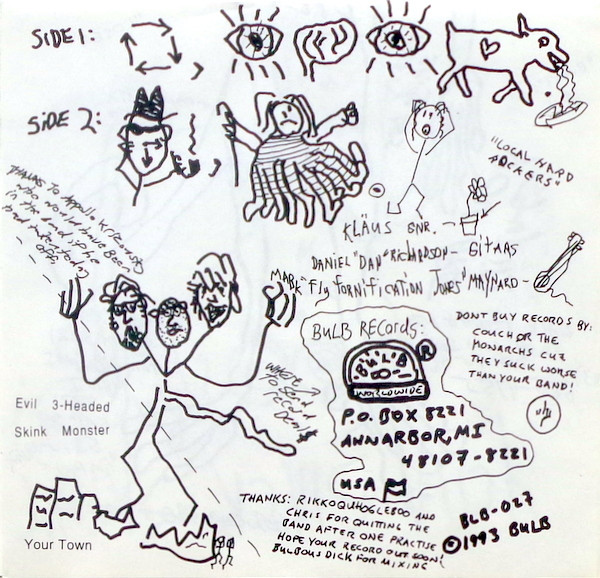 SIDE 1:
SIDE 2:
"LOCAL HARD
ROCKERS"
THANKS TO
WHO WOULD HAVE BEEN
IN THE BAND IF HE
HAD
OFF.
KLÄUS GNR. -
DANIEL "DAN" RICHARDSON - GITARS
MARK "Fly FORNIFICATION JONES" MAYNARD -
BULB RECORDS:
BULB
®
WORLDWIDE
P.O. BOX 8221
ANN ARBOR, MI
48107-8221
USA
DON'T BUY RECORDS BY:
COUCH OR THE
MONARCHS CUZ
THEY SUCK WORSE
THAN YOUR BAND!
WHERE
TO SEND
Evil 3-Headed
Skink Monster
Your Town
THANKS: RIKKOQUHOGLEBOO AND
CHRIS FOR QUITTING THE
BAND AFTER ONE PRACTISE
HOPE YOUR RECORD OUT SOON!
BULBOUS DICK FOR MIXING
BLB-027
©1993 BULB